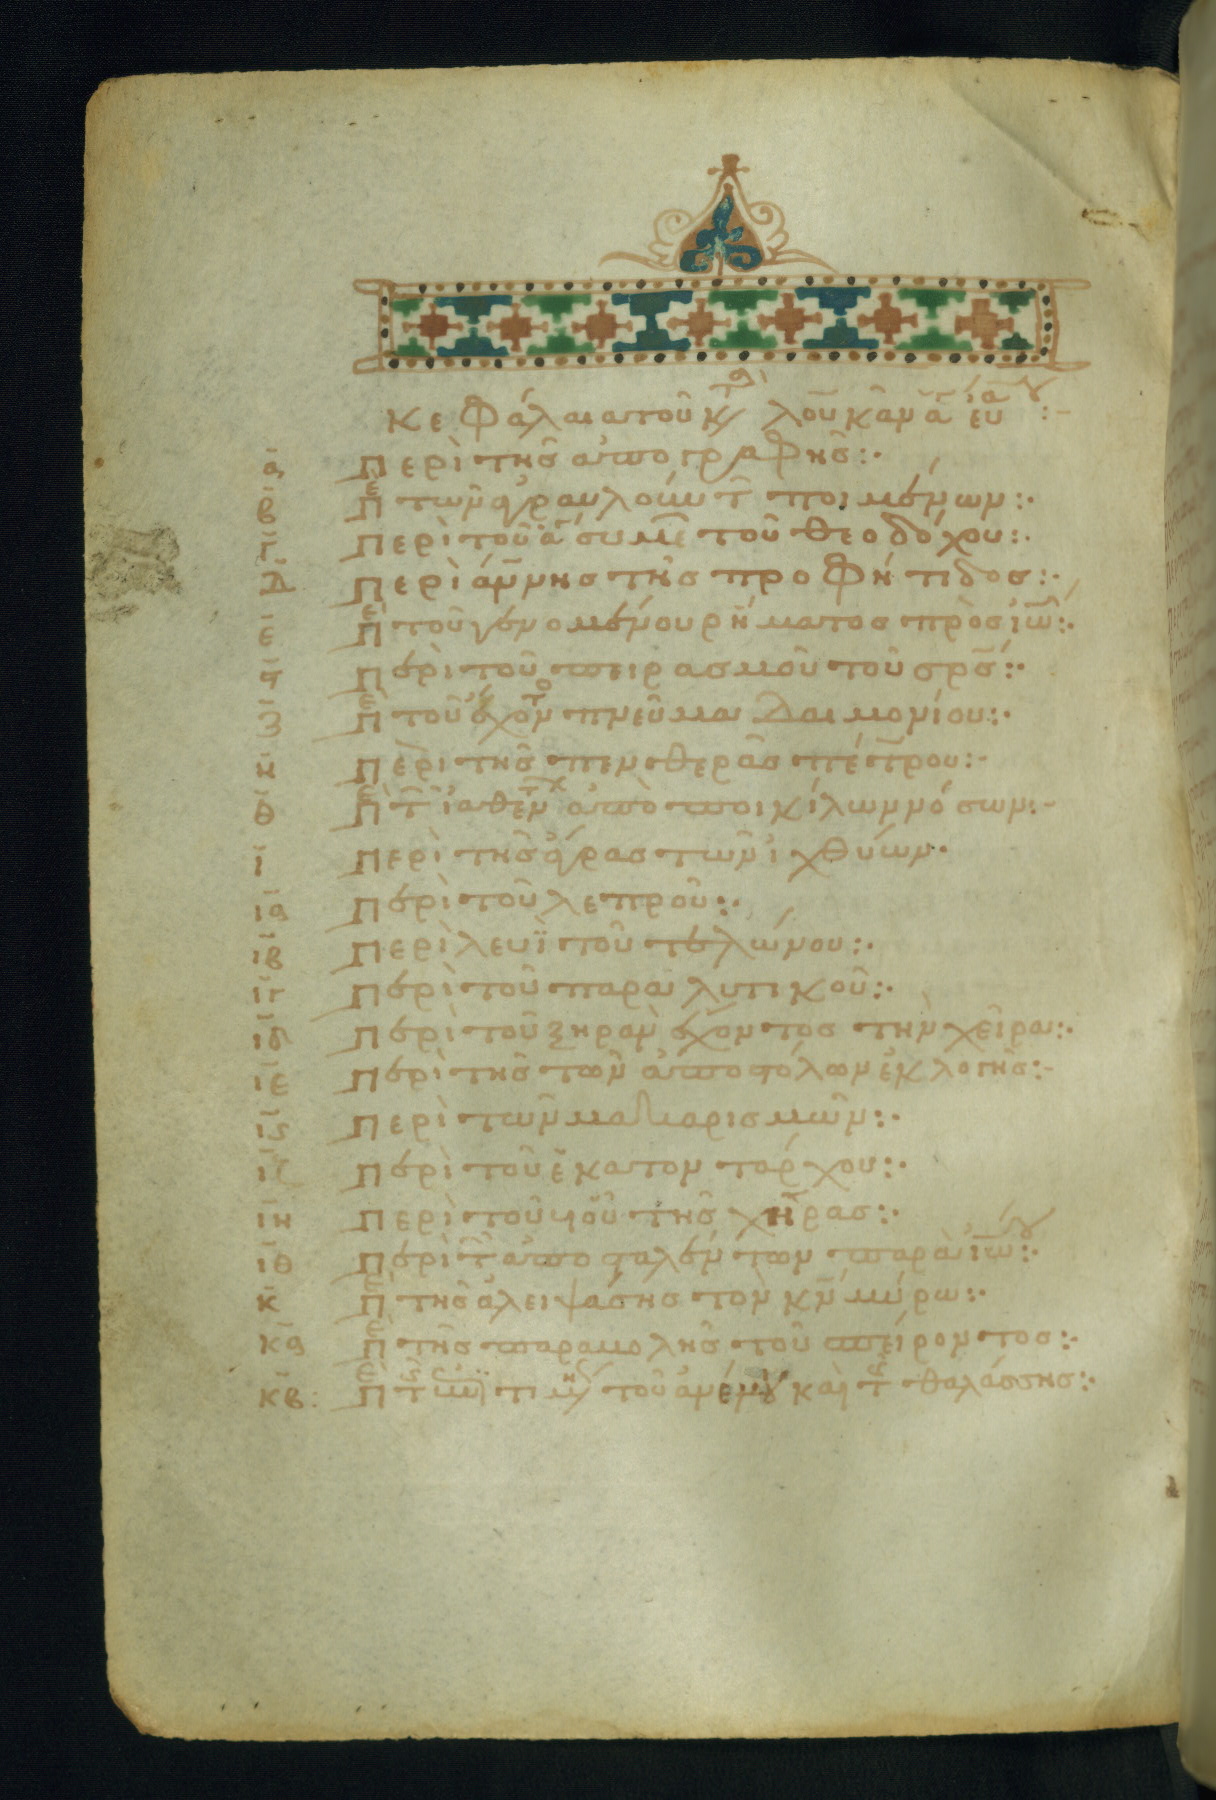 Κεφάλαια τοῦ κτ λουκᾶν ἁ εὐα :-
α Περὶ τῆς ἀπογραφῆς :·
β Πε τῶν ἀγραυλούντ ποιμένων :·
γ Περὶ τοῦ ἁ συμε τοῦ θεοδόχου :·
δ Περὶ ἄννης τῆς προφήτιδος :·
ε Πε τοῦ γενομένου ρήματος πρὸς ἰω :·
ς Περὶ τοῦ πειρασμοῦ τοῦ σρς :·
ζ Πε τοῦ ἔχοντο πνεῦμα δαιμονίου :·
η Περὶ τῆς πενθερᾶς πέτρου :-
θ Πε τ ἰαθέντ ἀπὸ ποικίλων νόσων :-
ι Περὶ τῆς ἄγρας τῶν ἰχθύων ·
ια Περὶ τοῦ λεπροῦ :·
ιβ Περὶ λευῒ τοῦ τελώνου :·
ιγ Περὶ τοῦ παραλυτικοῦ :·
ιδ Περὶ τοῦ ξηρὰν ἔχοντος τὴν χεῖρα :·
ιε Περὶ τῆς τῶν ἀποστόλων ἐκλογῆς :-
ις Περὶ τῶν μακαρισμῶν :·
ιζ Περὶ τοῦ ἑκατοντάρχου :·
ιη Περὶ τοῦ υἱοῦ τῆς χήρας :·
ιθ Περὶ τ ἀποσταλέντων παρὰ ἰωου :·
κ Πε τῆς ἀλειψάσης τὸν κν μύρω :·
κα Πε τῆς παραβολῆς τοῦ σπείροντος :·
κβ : Πε τ τοῦ ἀνέμου καὶ τ θαλάσσης :·